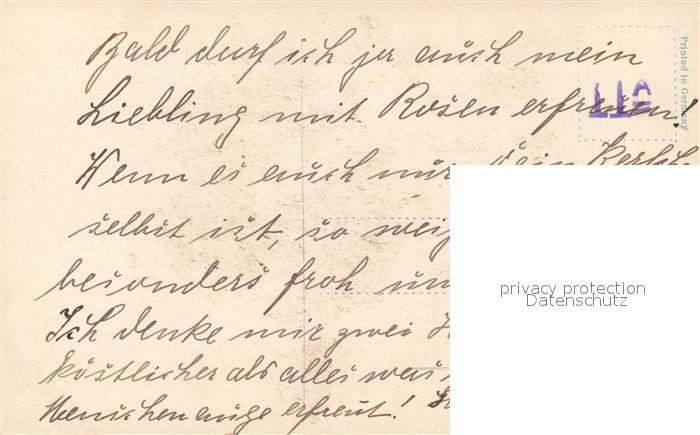 Bald darf ich ja auch mein
Liebling mit Rosen erfreuen!
Wenn es auch nur Dein
selbst ist, so
besonders froh
Ich denke mir zwei
köstlicher als alles was
Menschenauge erfreut!
Printed in Germany
privacy protection
Datenschutz